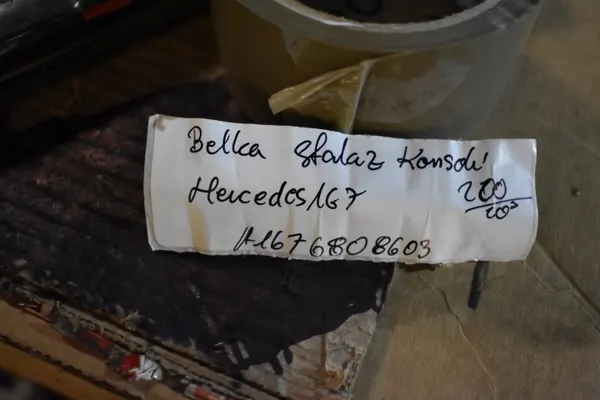 Belka stalaz Konsoli
Mercedes 167
200
203
A167 6808603